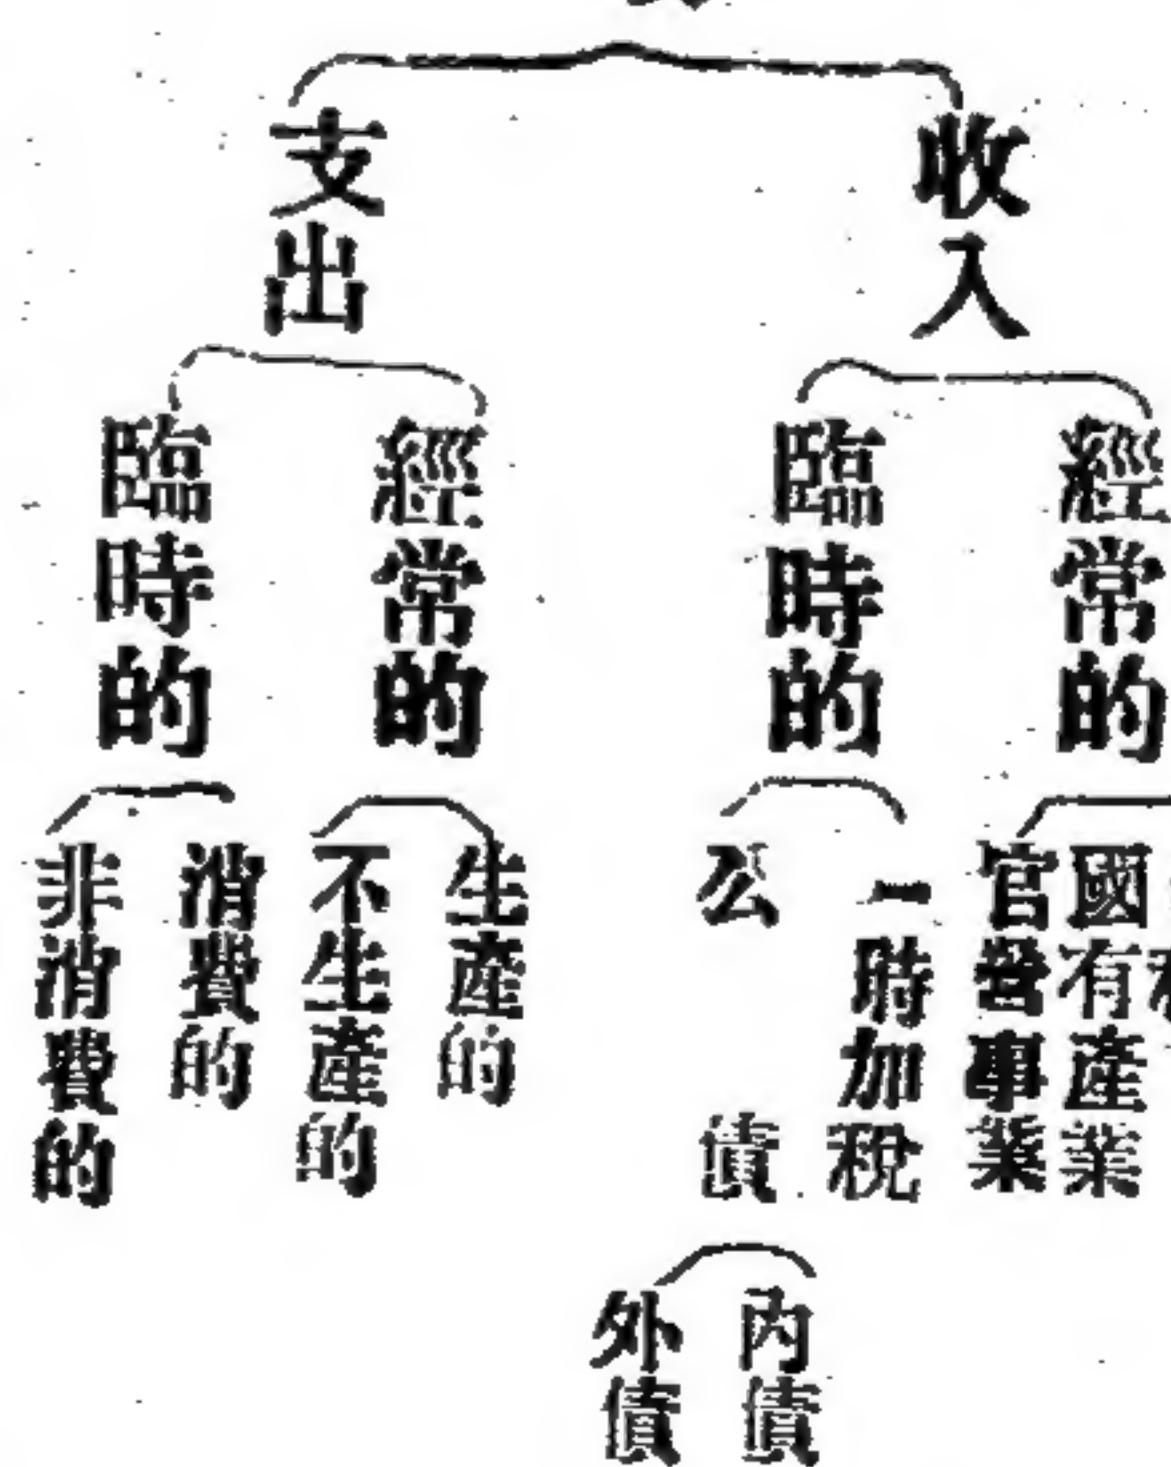 收入
經常的
國有產業
官營事業
臨時的
一時加稅
公債
內債
外債
支出
經常的
生產的
不生產的
臨時的
消費的
非消費的